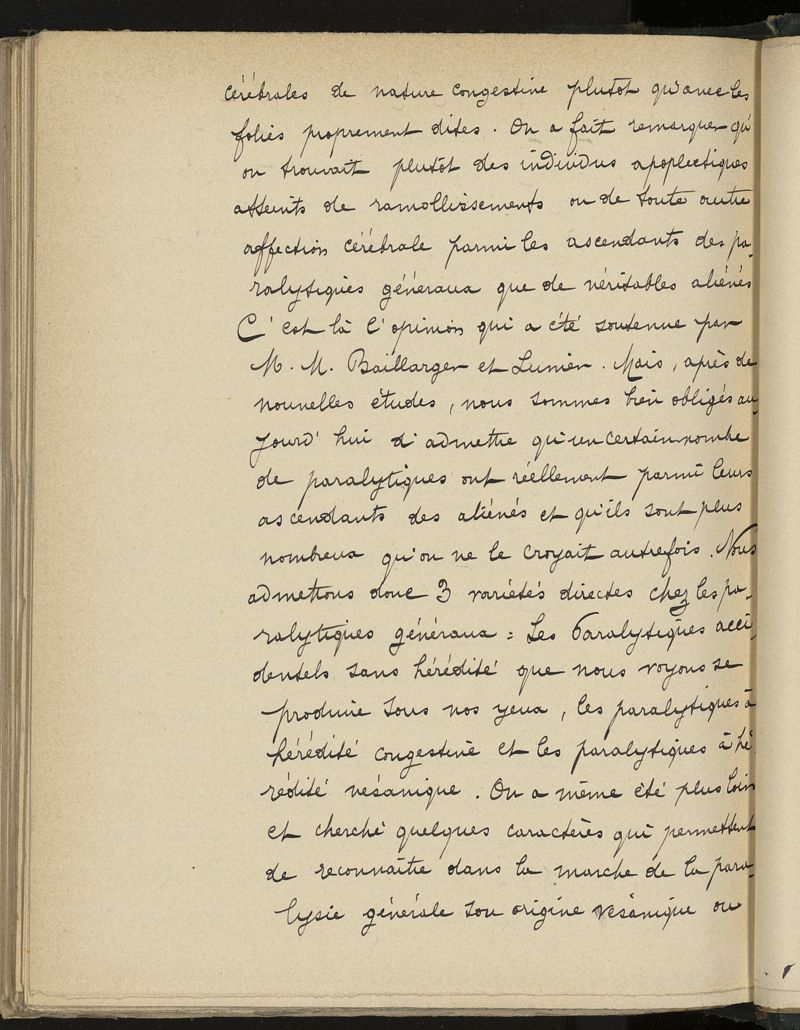 cérébrales de nature congestive plutôt qu'avec les
folies proprement dites. On a fait remarquer qu'
on trouvait plutôt des individus apoplectiques
atteints de ramollissements ou de toute autre
affection cérébrale parmi les ascendants des pa-
ralytiques généraux que de véritables aliénés
C'est là l'opinion qui a été soutenue par
M. M. Baillarger et Lunier. Mais, après de
nouvelles études, nous sommes bien obligés au-
jourd'hui d'admettre qu'un certain nombre
de paralytiques ont réellement parmi leurs
ascendants des aliénés et qu'ils sont plus
nombreux qu'on ne le croyait autrefois. Nous
admettons donc 3 variétés directes chez les pa-
ralytiques généraux = Les Paralytiques acci-
dentels sans hérédité que nous voyons se
produire sous nos yeux, les paralytiques à
hérédité congestive et les paralytiques à hé
rédité vésanique. On a même été plus loin
et cherché quelques caractères qui permettent
de reconnaître dans la marche de la para-
lysie générale son origine vésanique ou